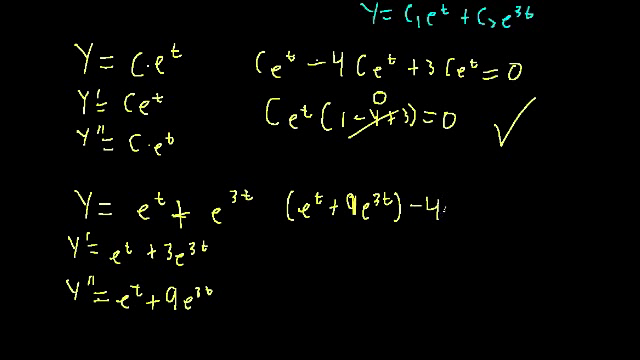 Y = C₁e^t + C₂e^3t
Y = C·e^t
Ce^t - 4Ce^t + 3Ce^t = 0
Y' = Ce^t
0
Ce^t (1 - 4 + 3) = 0 ✓
Y'' = C·e^t
Y = e^t + e^3t (e^t + 9e^3t) - 4
Y' = e^t + 3e^3t
Y'' = e^t + 9e^3t